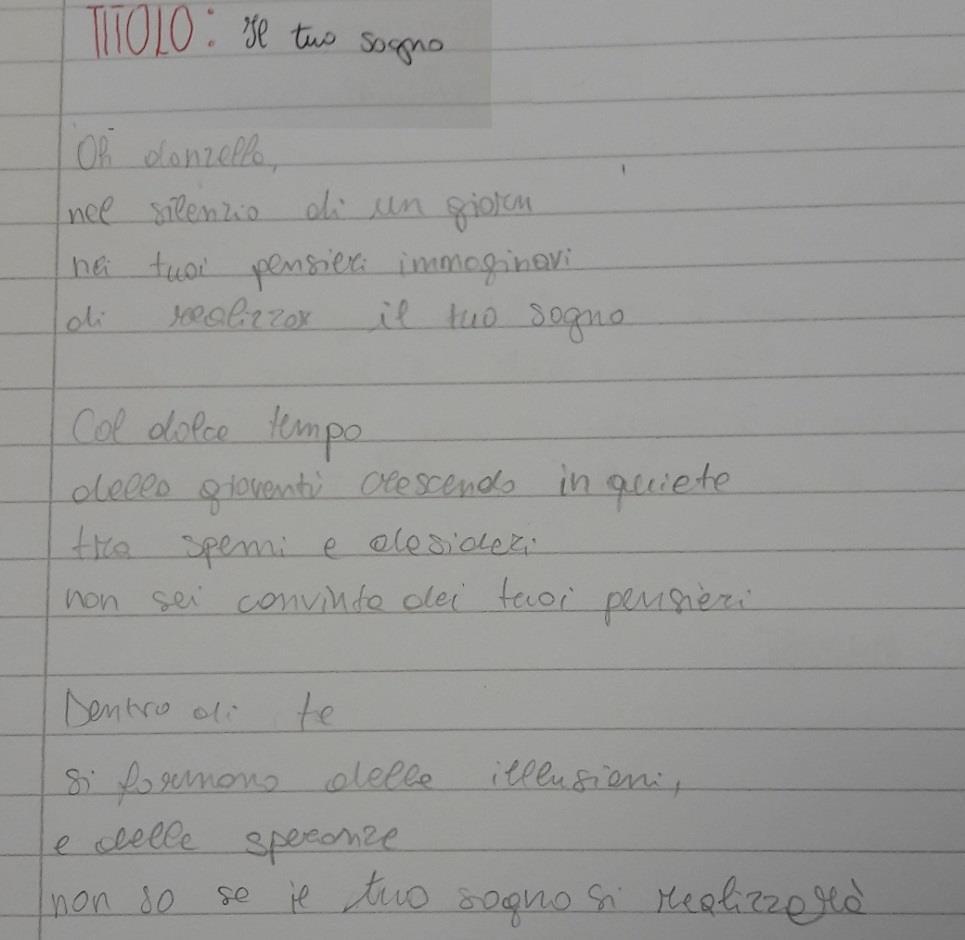 TITOLO: Il tuo sogno
Oh donzella,
nel silenzio di un giorn
nei tuoi pensieri immaginavi
di realizzar il tuo sogno
Col dolce tempo
della gioventì crescendo in quiete
tra spemi e desideri
non sei convinta dei tuoi pensieri
Dentro di te
si formano delle illusioni,
e delle speranze
non so se il tuo sogno si realizzerà